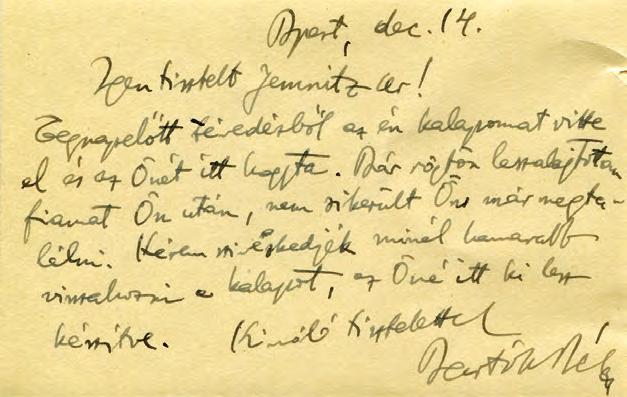 Bpest, dec. 14.
Igen tisztelt Jemnitz úr!
Tegnapelőtt tévedésből az én kalapomat vitte
el és az Önét itt hagyta. Bár rögtön leszalajtottam
fiamat Ön után, nem sikerült Önt már megta-
lálni. Kérem sziveskedjék minél hamarabb
visszahozni a kalapot, az Öné itt ki lesz
készítve. Kiváló tisztelettel
Bartók Béla